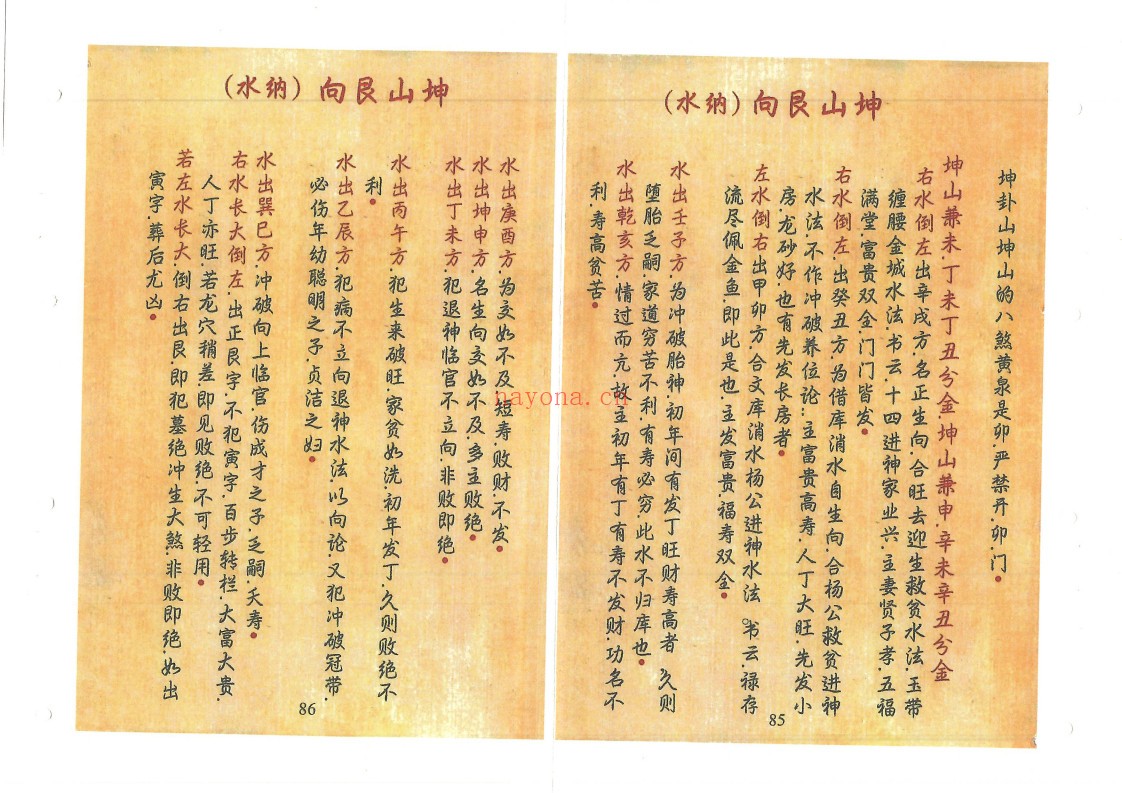 坤山艮向（纳水）
坤卦山坤山的八煞黄泉是卯严禁开.卯.门.
坤山兼未.丁未丁丑分金.坤山兼申.辛未辛丑分金
右水倒左出辛戌方.名正生向.合旺去迎生救贫水法.玉带
缠腰金城水法.书云.十四进神家业兴.主妻贤子孝.五福
满堂.富贵双全.门门皆发.
右水倒左.出癸丑方.为借库消水自生向.合杨公救贫进神
水法.不作冲破养位论:主富贵高寿.人丁大旺.先发小
房.龙砂好.也有先发长房者.
左水倒右出甲卯方.合文库消水杨公进神水法 书云.禄存
流尽佩金鱼.即此是也.主发富贵.福寿双全.
水出壬子方.为冲破胎神.初年间有发丁旺财寿高者 久则
堕胎乏嗣.家道穷苦不利.有寿必穷此水不归库也.
水出乾亥方.情过而亢.故主初年有丁有寿不发财.功名不
利.寿高贫苦.
85
坤山艮向（纳水）
水出庚酉方.为交如不及.短寿.败财.不发.
水出坤申方.名生向交如不及.多主败绝.
水出丁未方.犯退神临官不立向.非败即绝.
水出丙午方.犯生来破旺.家贫如洗.初年发丁.久则败绝不
利.
水出乙辰方.犯病不立向退神水法.以向论.又犯冲破冠带.
必伤年幼聪明之子.贞洁之妇.
水出巽巳方.冲破向上临官.伤成才之子.乏嗣.夭寿.
右水长大倒左.出正艮字.不犯寅字.百步转栏.大富大贵.
人丁亦旺.若龙穴稍差即见败绝.不可轻用.
若左水长大.倒右出艮即犯墓绝冲生大煞.非败即绝.如出
寅字.葬后尤凶.
86
nayona.cn